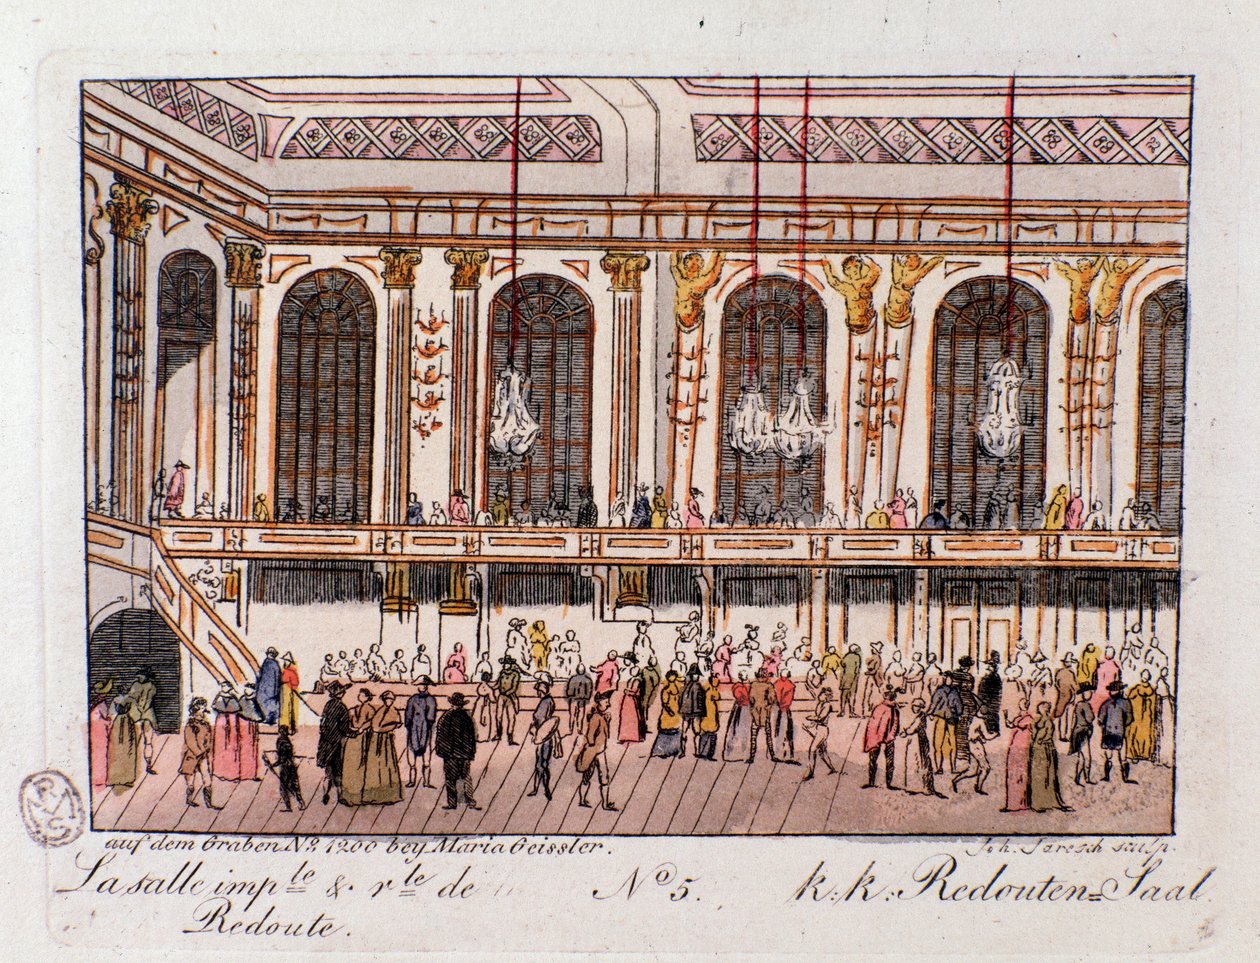 auf dem Graben No. 1200 bey Maria Geissler.
Joh. sculp.
La salle imple & rle de Redoute.
No 5.
k: k: Redouten=Saal.